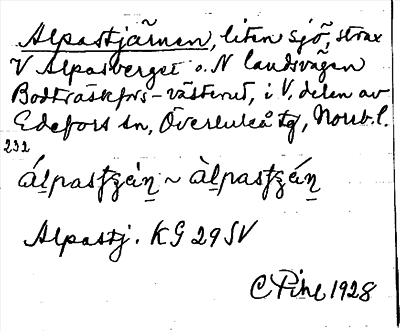 Alpastjärnen, liten sjö, strax
V Alpasberget o. N landsvägen
Bodträskfors-västerut, i V. delen av
Edefors sn, Överluleå tg, Norrb. l.
232
Alpastj. KG 29 SV
C Pihl 1928